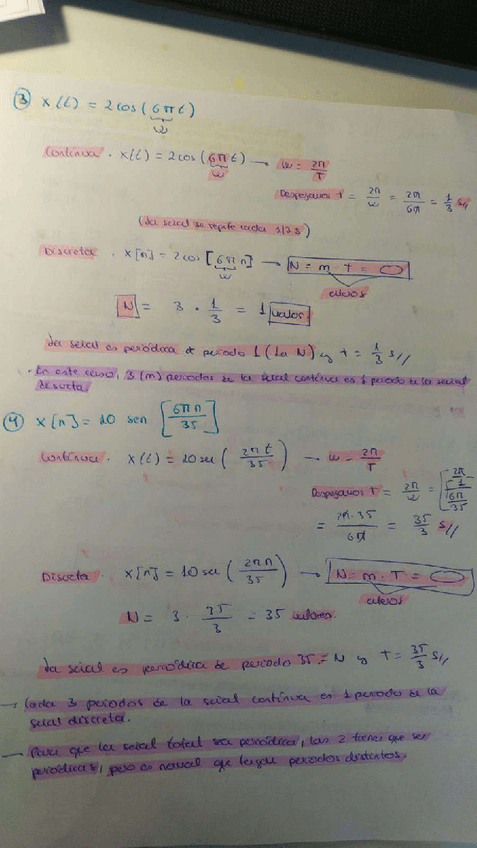 ③ x(t) = 2cos(6πt)
ω
Continua. x(t) = 2cos(6πt) → ω = 2π/T
ω
Despejamos T = 2π/ω = 2π/6π = 1/3 s//
(La señal se repite cada 1/3 s)
Discreta. x[n] = 2cos[6πn] → N = m · T =
ω
enteros
N = 3 · 1/3 = 1 valor
La señal es periódica de periodo 1 (la N) y T = 1/3 s//
· En este caso, 3 (m) periodos de la señal continua es 1 periodo de la señal
discreta.
④ x[n] = 10 sen [6πn/35]
Continua. x(t) = 10 sen (2πt/35) → ω = 2π/T
Despejamos T = 2π/ω = [2π/1 / 6π/35]
= 2π·35/6π = 35/3 s//
Discreta. x[n] = 10 sen (2πn/35) → N = m · T =
enteros
N = 3 · 35/3 = 35 valores.
La señal es periódica de periodo 35 = N y T = 35/3 s//
→ Cada 3 periodos de la señal continua es 1 periodo de la
señal discreta.
→ Para que la señal total sea periódica, las 2 tienen que ser
periódicas, pero es normal que tengan periodos distintos.